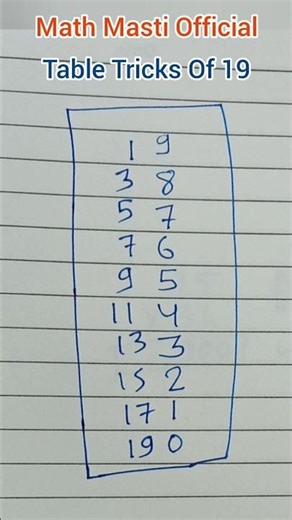 Math Masti Official
Table Tricks Of 19
1 9
3 8
5 7
7 6
9 5
11 4
13 3
15 2
17 1
19 0